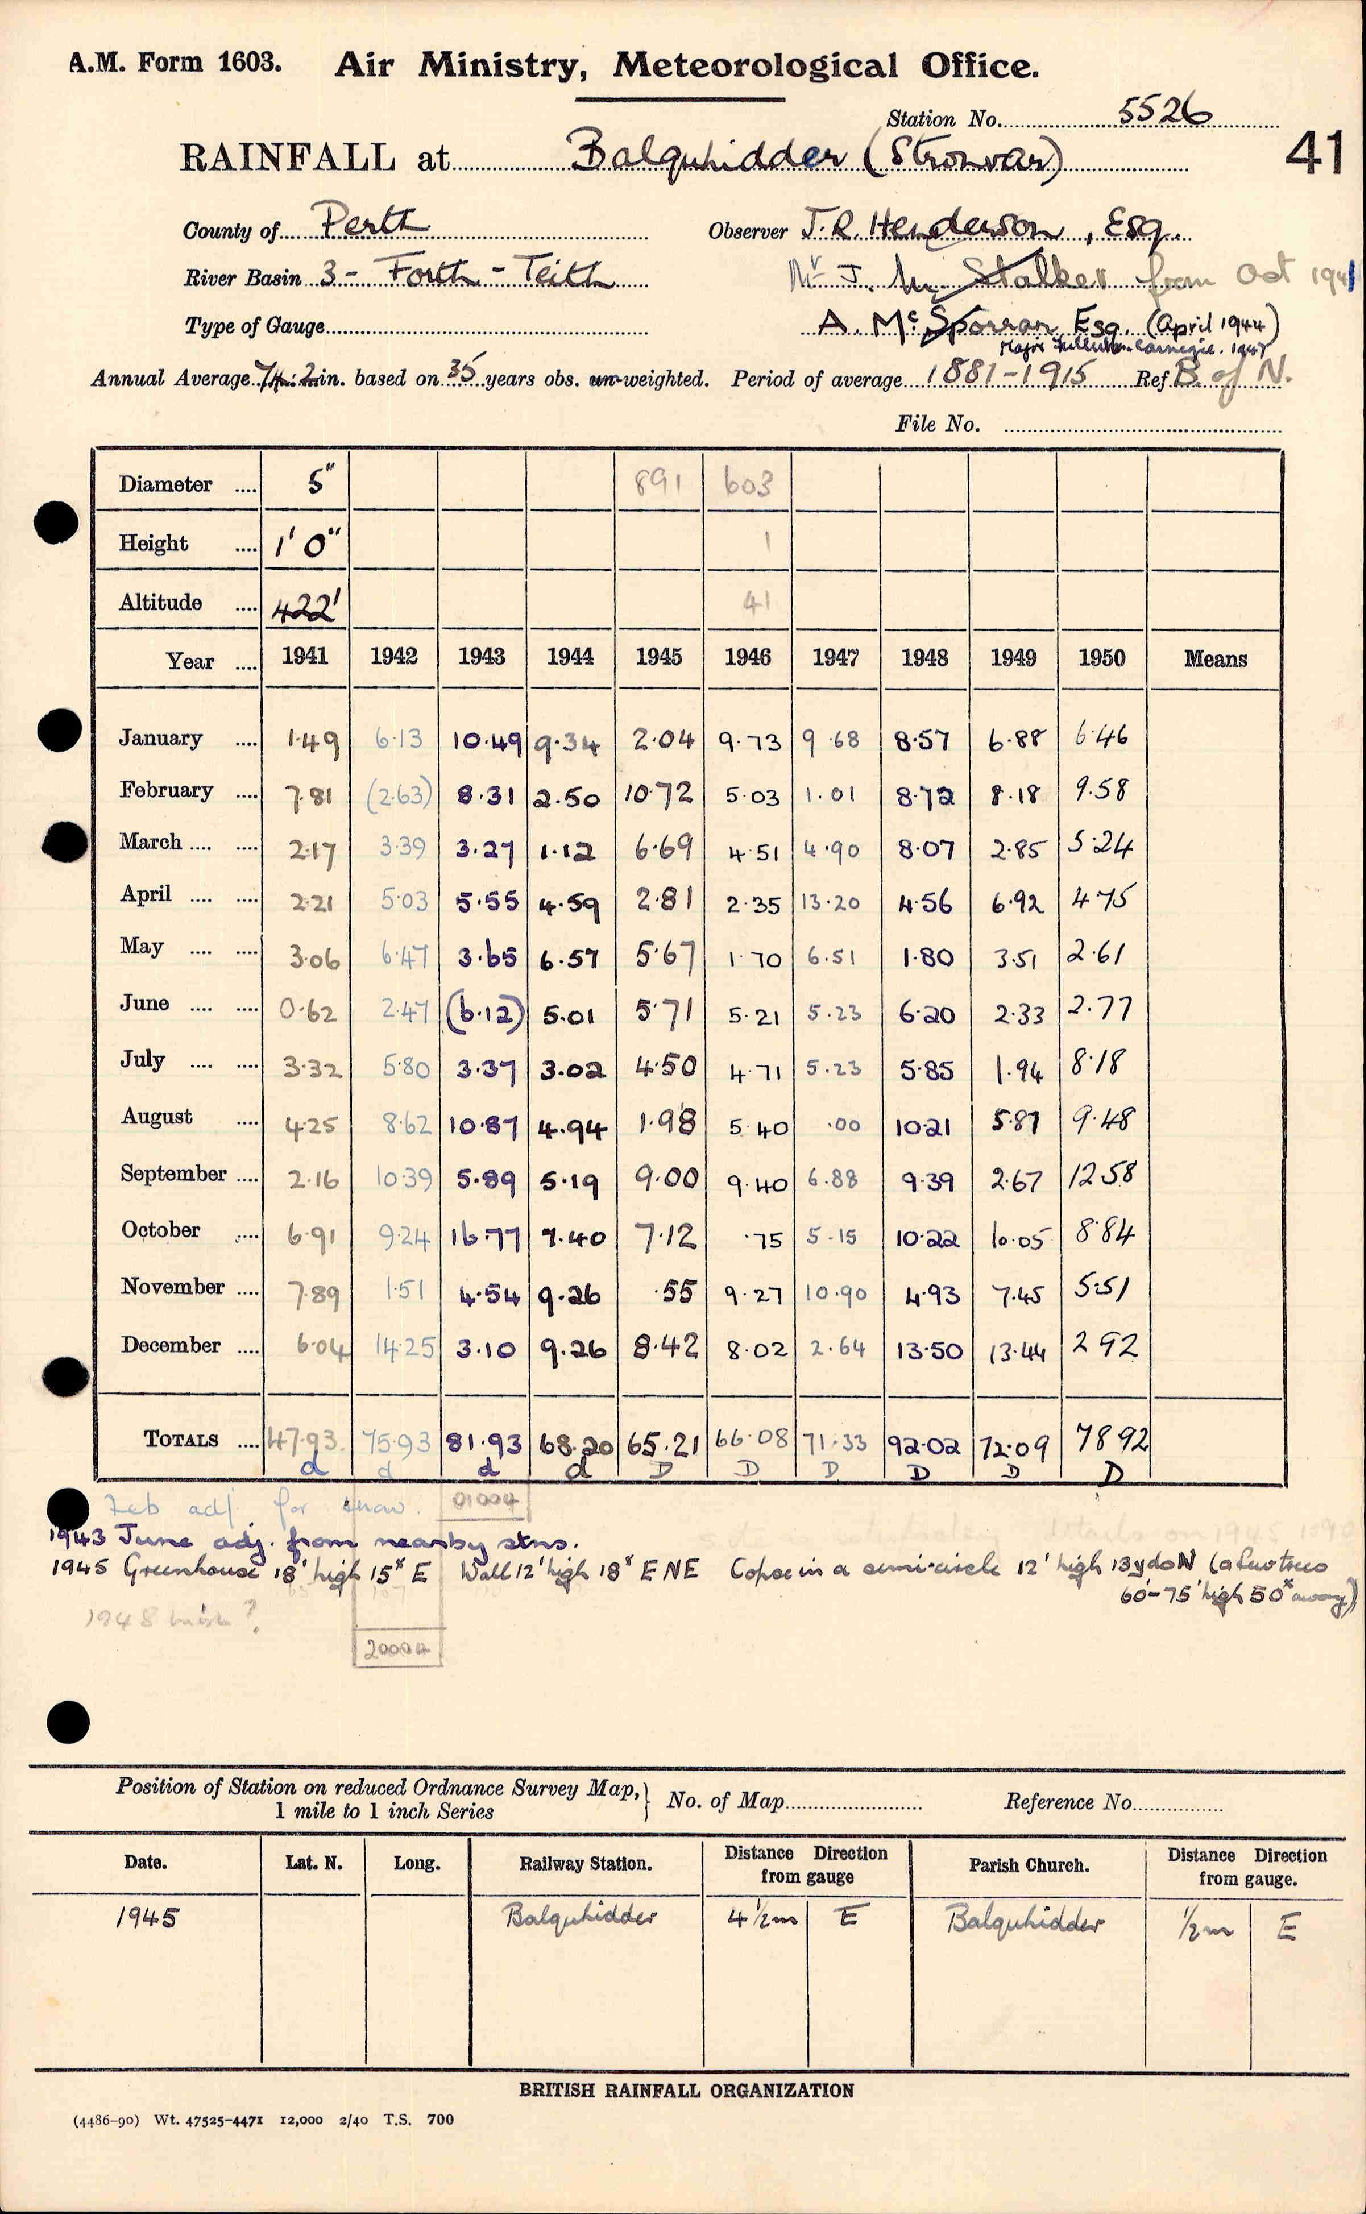 A.M. Form 1603. Air Ministry, Meteorological Office.
Station No. 5526
41
RAINFALL at Balquhidder (Stronvar)
County of Perth Observer J.R. Henderson, Esq.
River Basin 3 - Forth - Teith Mr J. Mc Stalker from Oct 1941
Type of Gauge A. McSporran Esq. (April 1944)
Major Carnegie. 1947
Annual Average 74.2 in. based on 35 years obs. un-weighted. Period of average 1881-1915 Ref B. of N.
File No.
Diameter .... 5" 891 603
Height .... 1' 0" 1
Altitude .... 422' 41
Year .... 1941 1942 1943 1944 1945 1946 1947 1948 1949 1950 Means
January .... 1.49 6.13 10.49 9.34 2.04 9.73 9.68 8.57 6.88 6.46
February .... 7.81 (2.63) 8.31 2.50 10.72 5.03 1.01 8.72 8.18 9.58
March .... .... 2.17 3.39 3.27 1.12 6.69 4.51 4.90 8.07 2.85 5.24
April .... .... 2.21 5.03 5.55 4.59 2.81 2.35 13.20 4.56 6.92 4.75
May .... .... 3.06 6.47 3.65 6.57 5.67 1.70 6.51 1.80 3.51 2.61
June .... .... 0.62 2.47 (6.12) 5.01 5.71 5.21 5.23 6.20 2.33 2.77
July .... .... 3.32 5.80 3.37 3.02 4.50 4.71 5.23 5.85 1.94 8.18
August .... 4.25 8.62 10.87 4.94 1.98 5.40 .00 10.21 5.87 9.48
September .... 2.16 10.39 5.89 5.19 9.00 9.40 6.88 9.39 2.67 12.58
October .... 6.91 9.24 16.77 7.40 7.12 .75 5.15 10.22 10.05 8.84
November .... 7.89 1.51 4.54 9.26 .55 9.27 10.90 4.93 7.45 5.51
December .... 6.04 14.25 3.10 9.26 8.42 8.02 2.64 13.50 13.44 2.92
TOTALS .... 47.93 75.93 81.93 68.20 65.21 66.08 71.33 92.02 72.09 78.92
d d d d D D D D D D
Feb adj for snow. 01004
1943 June adj. from nearby stns.
1945 Greenhouse 18' high 15x E Wall 12' high 18x ENE Copse in a semi-circle 12' high 13 yds N (a few trees
60'-75' high 50x away)
1948
20004
Position of Station on reduced Ordnance Survey Map,} No. of Map Reference No.
1 mile to 1 inch Series
Date. Lat. N. Long. Railway Station. Distance Direction from gauge Parish Church. Distance Direction from gauge.
1945 Balquhidder 4 1/2 m E Balquhidder 1/2 m E
BRITISH RAINFALL ORGANIZATION
(4486-90) Wt. 47525-4471 12,000 2/40 T.S. 700